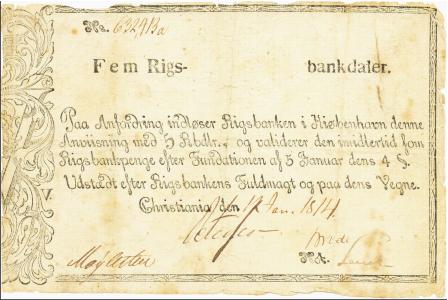 No. 6324Ba
Fem Rigs- bankdaler.
Paa Anfordring indløser Rigsbanken i Kiøbenhavn denne
Anviisning med 5 Rbdlr., og validerer den imidlertid som
Rigsbankpenge efter Fundationen af 5 Januar dens 4 §.
Udstædt efter Rigsbankens Fuldmagt og paa dens Vegne.
V.
Christiania, den 17 Jan. 1814.
Nt.